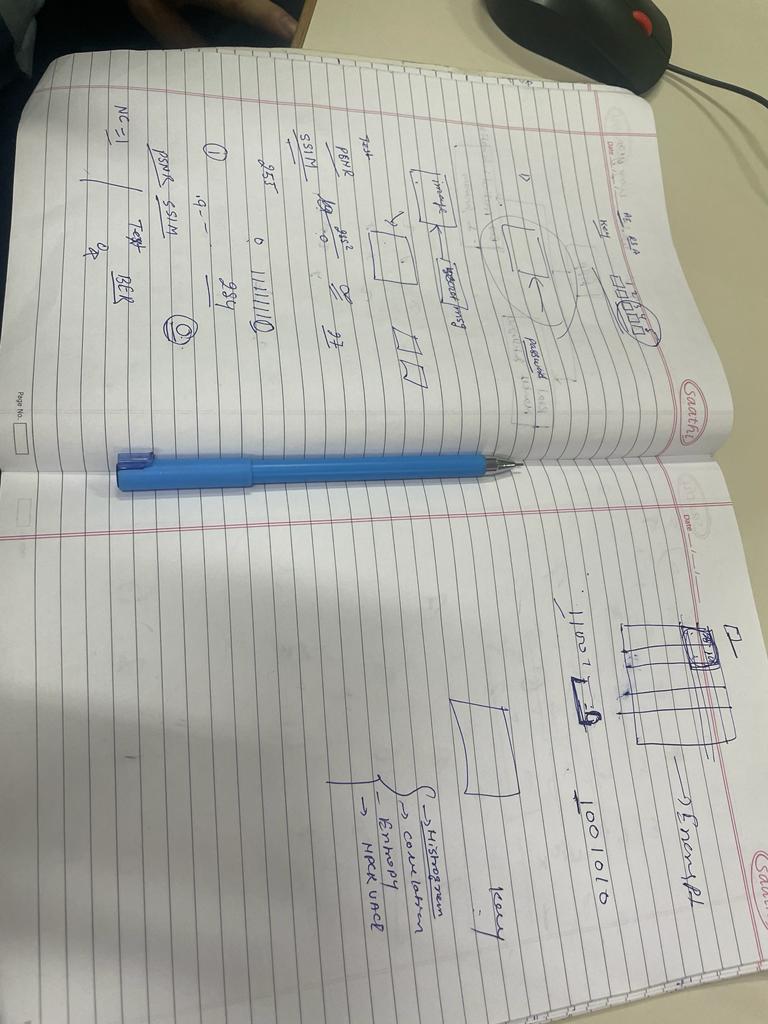 saathi
Date
RSA
Key
1 2 3 4 5
1)
Password
image
secret msg
Test
PSNR
log 255²
0
∞
27
SSIM
255
0
11111110
1
284
.9--
0
PSNR SSIM
NC = 1
Text
BER
0
Page No.
saathi
Date
Encrypt
11001
1001010
Key
→ Histrogram
→ Correlation
– Entropy
→ NPCR UACR